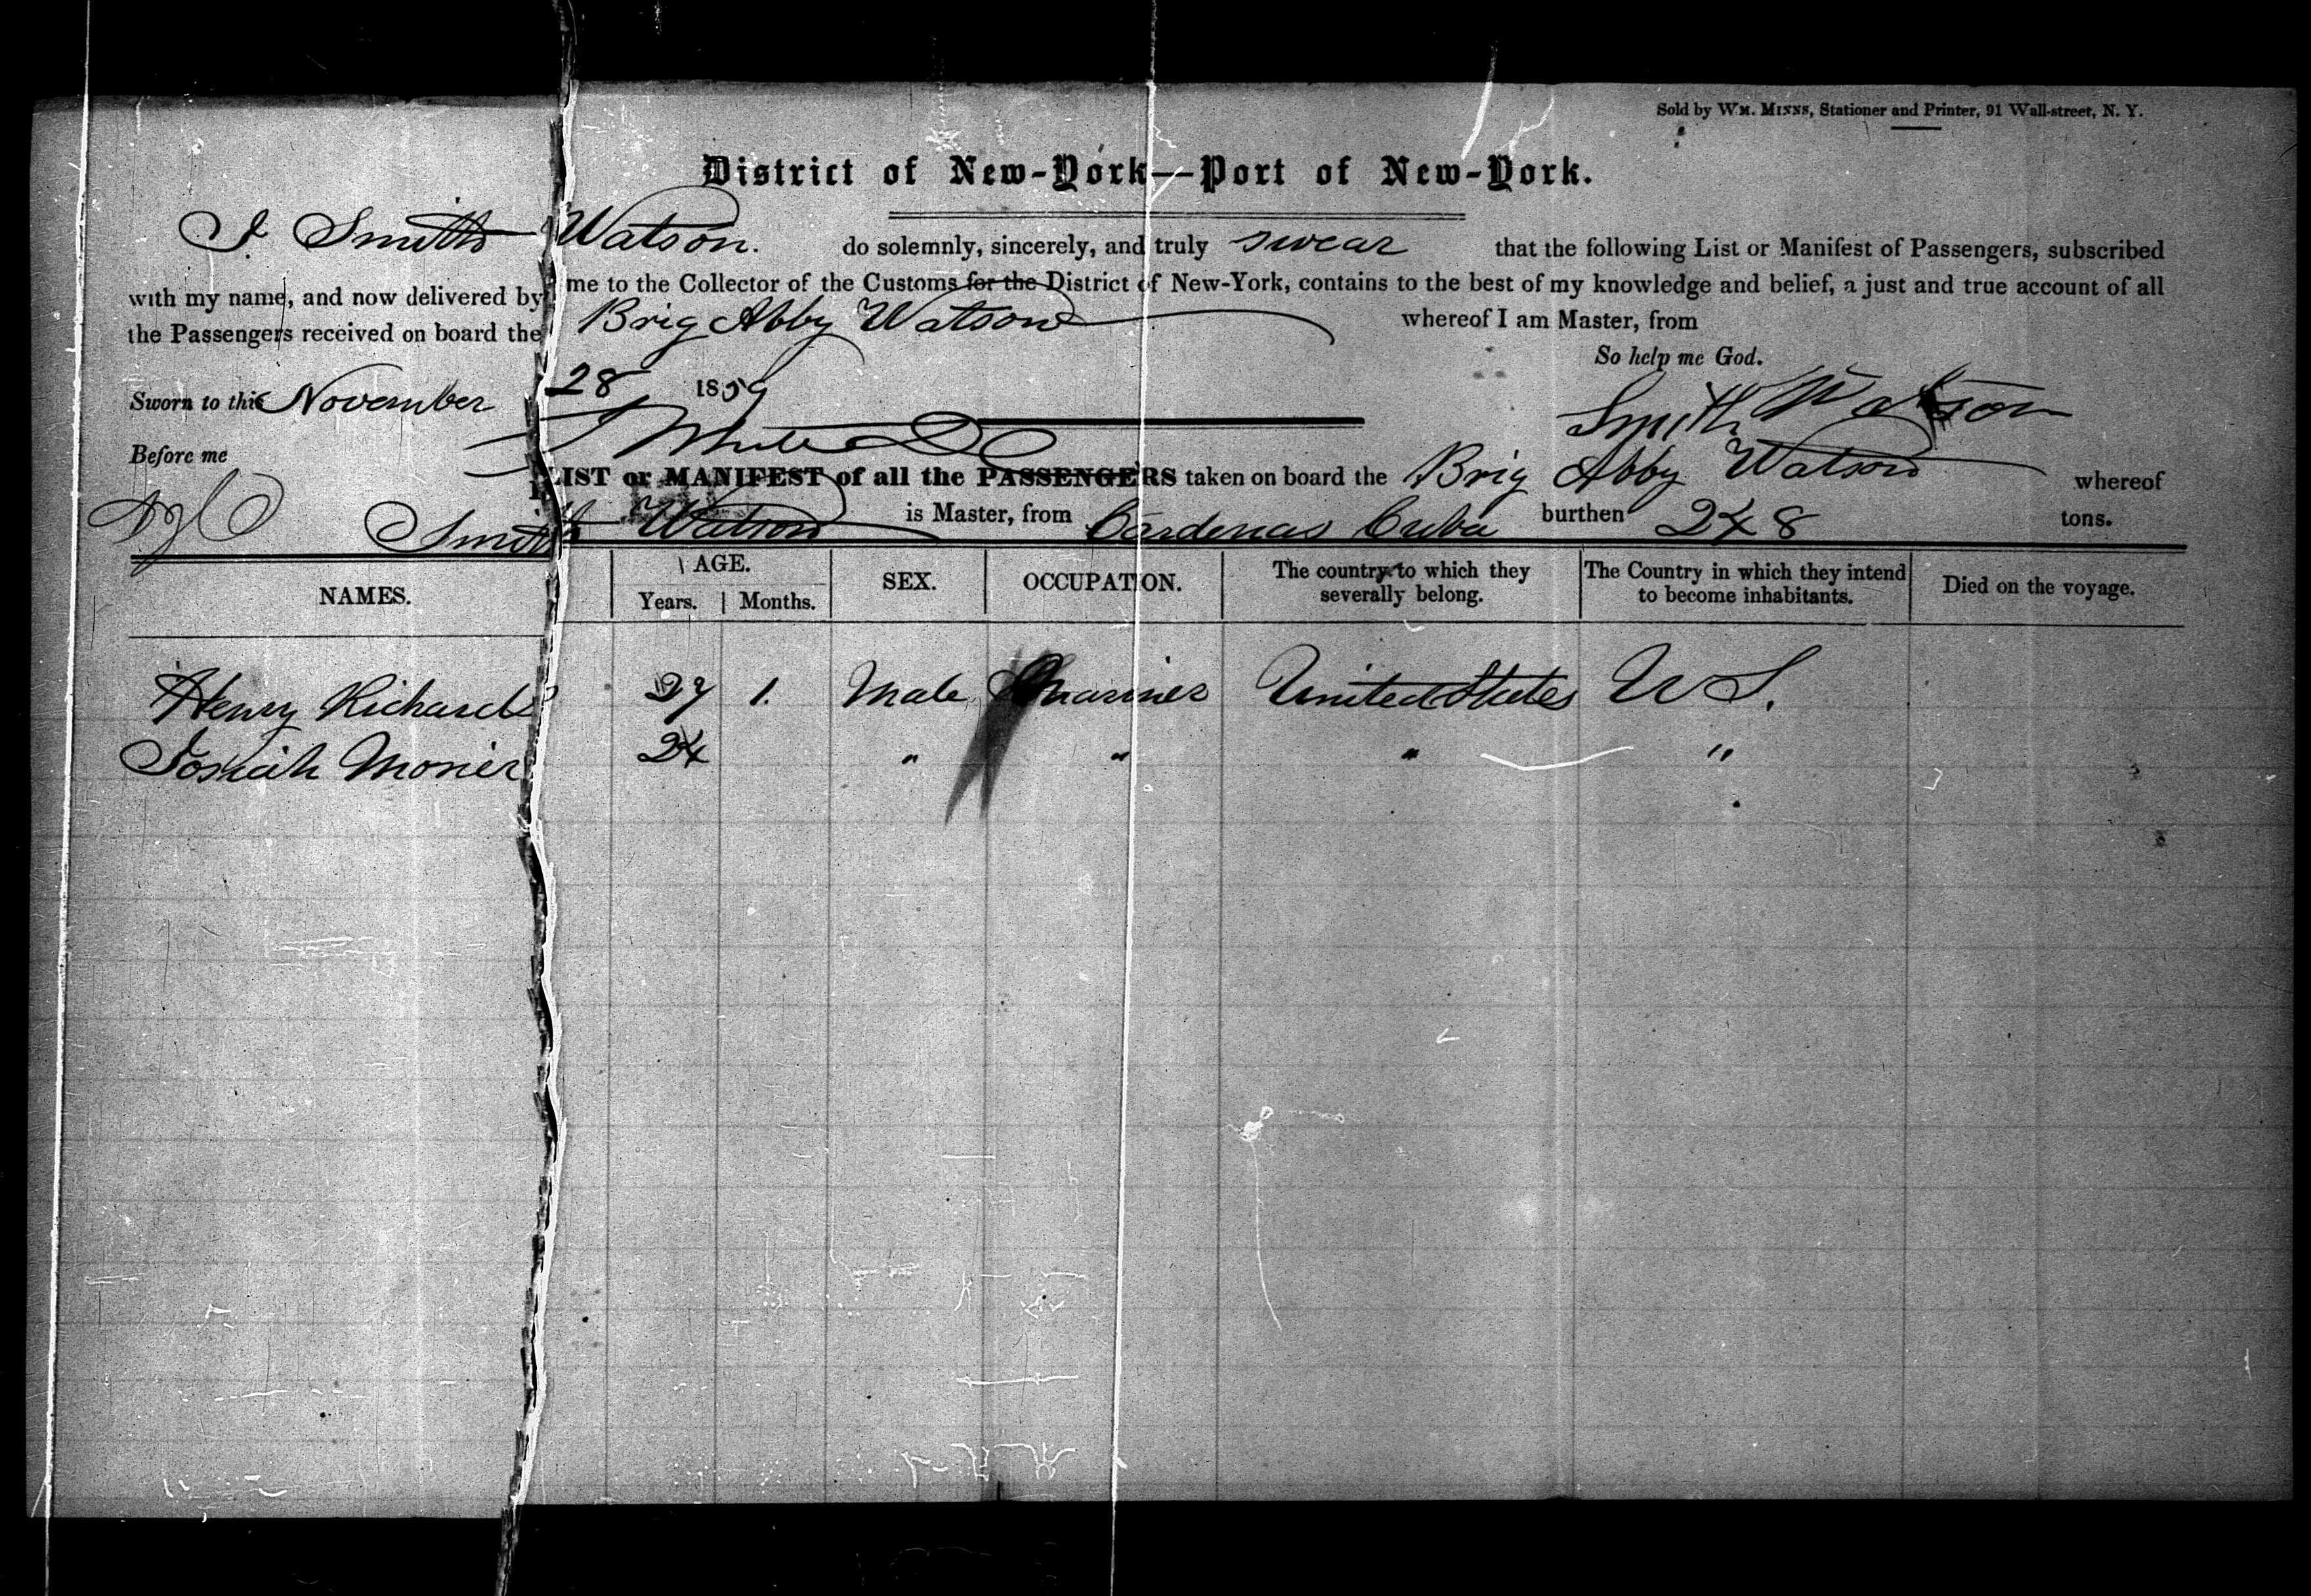 Sold by WM. MINNS, Stationer and Printer, 91 Wall-street, N. Y.
District of New-York—Port of New-York.
I Smith Watson. do solemnly, sincerely, and truly swear that the following List or Manifest of Passengers, subscribed
with my name, and now delivered by me to the Collector of the Customs for the District of New-York, contains to the best of my knowledge and belief, a just and true account of all
the Passengers received on board the Brig Abby Watson whereof I am Master, from
So help me God.
Sworn to this November 28 1859
Smith Watson
Before me
LIST or MANIFEST of all the PASSENGERS taken on board the Brig Abby Watson whereof
Smith Watson is Master, from Cardenas Cuba burthen 248 tons.
NAMES. AGE. Years. Months. SEX. OCCUPATION. The country to which they severally belong. The Country in which they intend to become inhabitants. Died on the voyage.
Henry Richards 27 1. Male Mariner United States U S.
Josiah Monier 24 " " " "